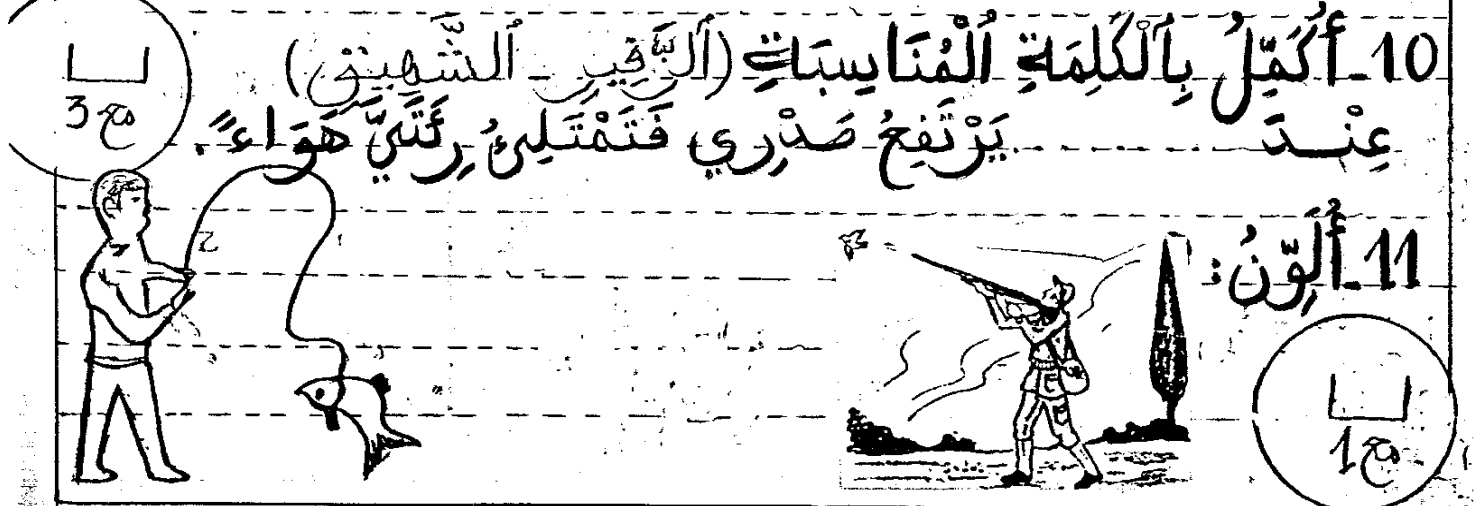 10 - أُكَمِّلُ بِالْكَلِمَةِ الْمُنَاسِبَةِ (الزَّفِيرِ - الشَّهِيقِ)
عِنْدَ ........ يَرْتَفِعُ صَدْرِي فَتَمْتَلِئُ رِئَتَيَّ هَوَاءً.
مع 3
11 - أُلَوِّنُ:
مع 1